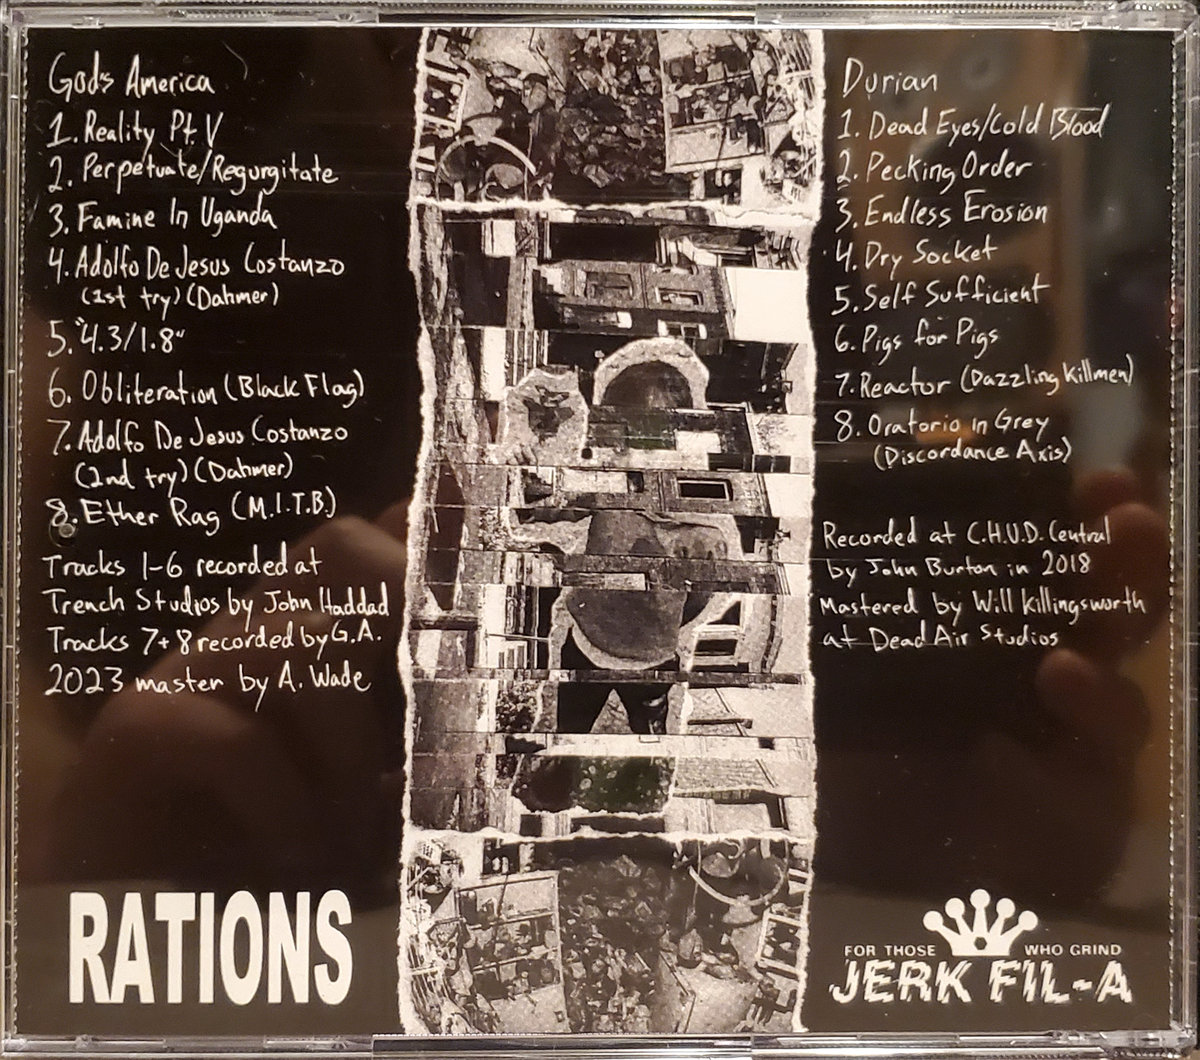 God's America
1. Reality Pt. V
2. Perpetuate/Regurgitate
3. Famine In Uganda
4. Adolfo De Jesus Costanzo
(1st try) (Dahmer)
5. "4.3/1.8"
6. Obliteration (Black Flag)
7. Adolfo De Jesus Costanzo
(2nd try) (Dahmer)
8. Ether Rag (M.I.T.B.)
Tracks 1-6 recorded at
Trench Studios by John Haddad
Tracks 7+8 recorded by G.A.
2023 master by A. Wade
RATIONS
Durian
1. Dead Eyes/Cold Blood
2. Pecking Order
3. Endless Erosion
4. Dry Socket
5. Self Sufficient
6. Pigs for Pigs
7. Reactor (Dazzling Killmen)
8. Oratorio in Grey
(Discordance Axis)
Recorded at C.H.U.D. Central
by John Burton in 2018
Mastered by Will Killingsworth
at Dead Air Studios
FOR THOSE WHO GRIND
JERK FIL-A